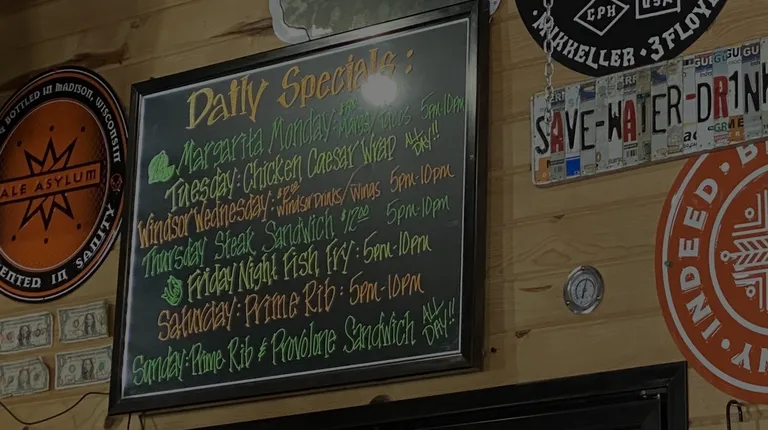 Daily Specials:
Margarita Monday: Margs/Tacos 5pm-10pm
Tuesday: Chicken Caesar Wrap ALL DAY!!
Windsor Wednesday: Windsor Drinks/Wings 5pm-10pm
Thursday Steak Sandwich $12.00 5pm-10pm
Friday Night Fish Fry: 5pm-10pm
Saturday: Prime Rib: 5pm-10pm
Sunday: Prime Rib & Provolone Sandwich ALL DAY!!
BOTTLED IN MADISON, WISCONSIN
ALE ASYLUM
FERMENTED IN SANITY
CPH USA
MIKKELLER · 3 FLOY
SAVE-WATER-DR1NK
INDEED · B
NY · INDEED